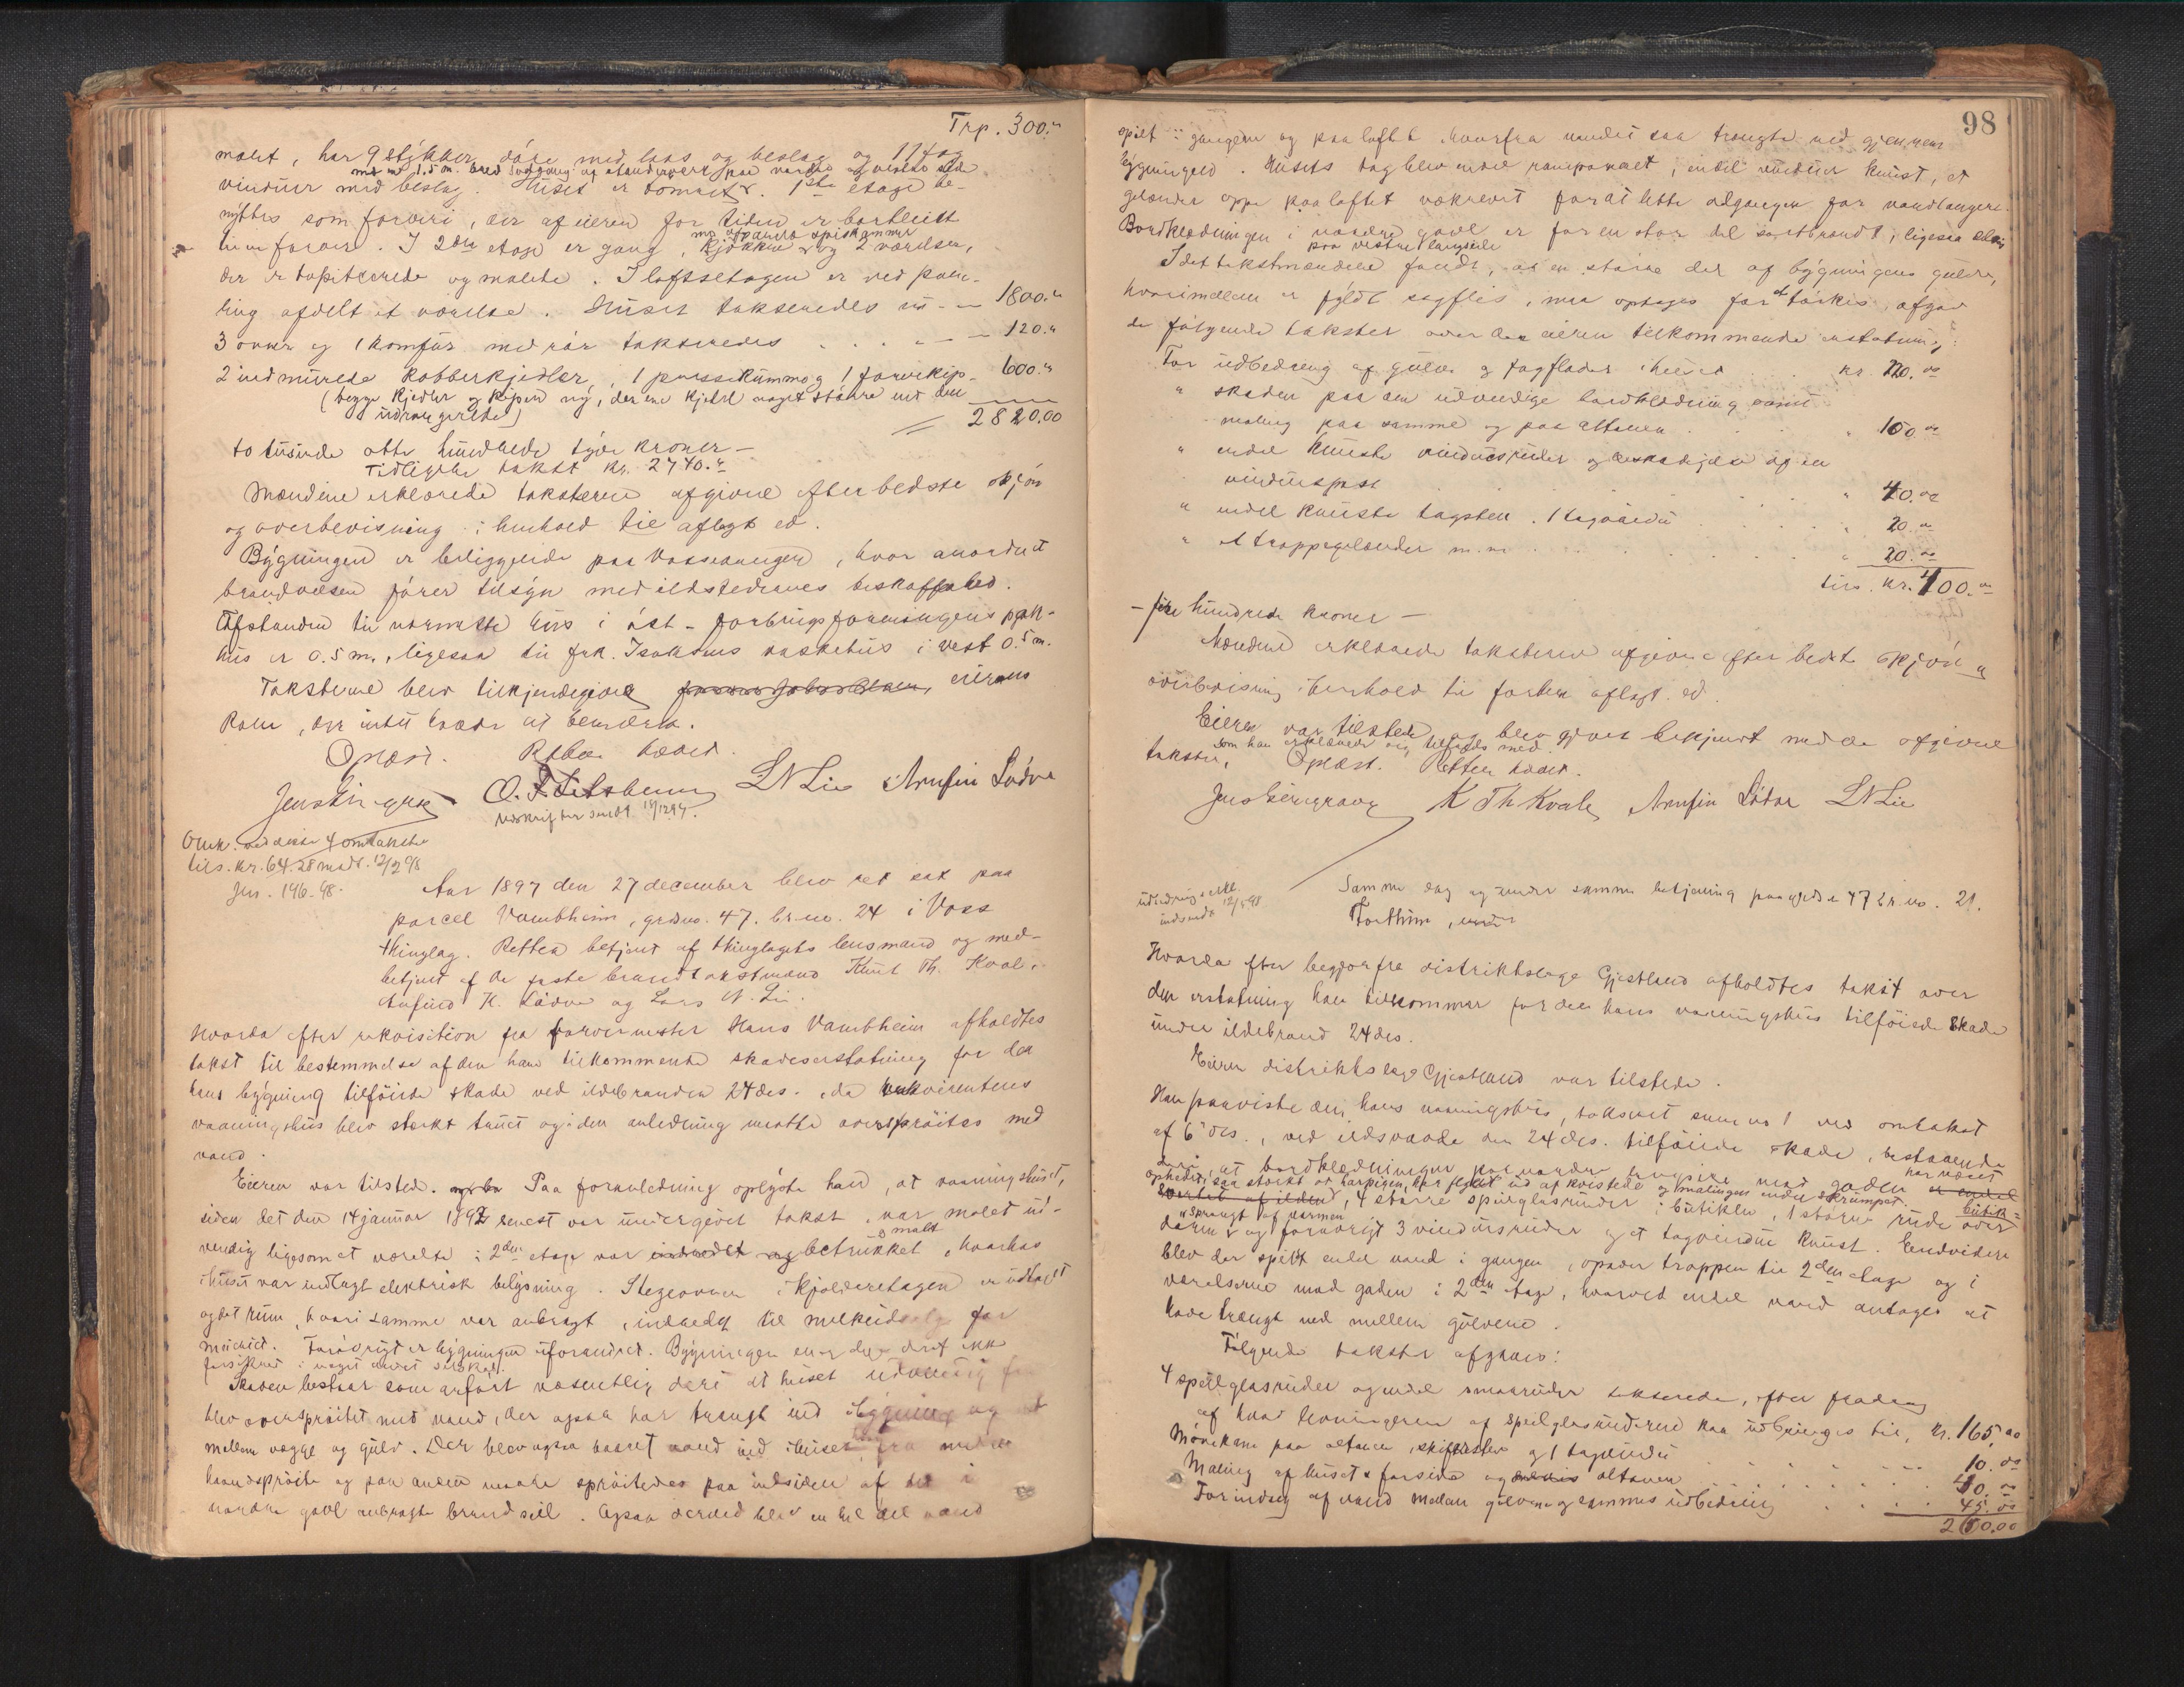 Trp. 300."
malet, har 9 stykker døre med laas og beslag og 11 fag
med en 1.5 m. bred svalgang og standerverk paa nordre og vestre side
vinduer med beslag. Huset er tomret. 1ste etage be-
nyttes som farveri, der af eieren for tiden er bortleiet
til en farver. I 2den etage er gang, kjøkken og 2 værelser,
med apparat spiskammer
der er tapitserede og malede. I loftsetagen er ved pane-
ling afdelt et værelse. Huset takseredes til - - 1800."
3 ovner og 1 komfur med rør takseredes . . . - - 120."
2 indmurede kobberkjedler, 1 pressekumme og 1 farvekip- 600."
(begge kjedler og kipen ny, den ene kjedel noget større end den
udrangerede)
2820.00
to tusinde otte hundrede tyve kroner -
Tidligere takst kr. 2740."
Mændene erklærede taksterne afgivne efter bedste skjøn
og overbevisning i henhold til aflagt ed.
Bygningen er beliggende paa Vossevangen, hvor anordnet
brandvæsen fører tilsyn med ildstedernes beskaffenhed.
Afstanden til nærmeste hus i øst - forbrugsforeningens pak-
hus er 0.5 m., ligesaa til frk. Isaksens vaskehus i vest 0.5 m.
Taksterne blev tilkjendegivet eierens
kone, der intet havde at bemærke.
Oplæst. Retten hævet.
Jens Gjerager O. T. Lilsheim L N Lie Arnfin Lødve
Udskrift er sendt 14/12 97.
Anm. ved disse 4 omtakster
tils. kr. 64.28 modt. 12/2 98
Jur. 146-98.
Aar 1897 den 27 december blev ret sat paa
parcel Vambheim, grdno. 47. br.no. 24 i Voss
thinglag. Retten betjent af thinglagets lensmand og med-
betjent af de faste brandtakstmænd Knut Th. Kvale,
Anfind K. Lødve og Lars N. Lie.
Hvorda efter rekvisition fra farvermester Hans Vambheim afholdtes
takst til bestemmelse af den ham tilkommende skadeserstatning for den
hans bygning tilføiede skade ved ildebranden 24 des., da rekvirentens
vaaningshus blev stærkt truet og i den anledning maatte oversprøites med
vand.
Eieren var tilstede. Paa foranledning oplyste han, at vaaningshuset,
siden det den 14 januar 1892 senest var undergivet takst, var malet ud-
vendig ligesom et værelse i 2den etage var indredet og betrukket og malt, hvorhos
i huset var indlagt elektrisk belysning. Stegeovnen i kjelderetagen er udtaget
og det rum, hvori samme var anbragt, indredet til melkeudsalg for
meieriet. Forøvrigt er bygningen uforandret. Bygningen eller dele deraf ikke
forsikret i noget andet selskab.
Skaden bestaar som anført væsentlig deri at huset udvendig
blev oversprøitet med vand, der ogsaa har trængt ind i bygningen og
mellem vægge og gulv. Der blev ogsaa baaret vand ind i huset fra
haandsprøite og paa anden maade sprøitedes paa indsiden af det i
nordre gavl anbragte brandseil. Ogsaa derved blev en hel del vand
98
spilt i gangen og paa loftet hvorfra vandet saa trængte ned gjennem
bygningen. Husets tag blev endel ramponeret, endel vinduer knust, et
gelænder oppe paa loftet vekrevet for at lette adgangen for vandlangere.
Bordklædningen i nordre gavl er for en stor del sortbrændt, ligesaa
paa vestre langside
Idet takstmændene fandt, at en større del af bygningens gulve,
hvorimellem er fyldt sagflis, maa optages for at tørkes, afgav
de følgende takster over den eieren tilkommende erstatning:
For udbedring af gulve og tagflader i huset . . kr. 220.00
" skaden paa den udvendige bordklædning samt
maling paa samme og paa altanen . . " 100.00
" endel knuste vinduesruder og beskadigelse af en
vinduespost . . . " 40.00
" endel knuste tagsten, 1 tagvindu . . " 20.00
" et trappegelænder m.m. . . " 20.00
tils. kr. 400.00
- fire hundrede kroner -
Mændene erklærede taksterne afgivne efter bedste skjøn og
overbevisning i henhold til forhen aflagt ed.
Eieren var tilstede og blev gjort bekjendt med de afgivne
takster, som han erklærede sig tilfreds med. Oplæst. Retten hævet.
Jens Gjerager K Th Kvale Arnfin Lødve L N Lie
Udbedringserkl.
indsendt 12/5 98
Samme dag og under samme betjening paa grd no 47 br. no. 21.
Forthun,
Hvorda efter begjær fra distriktslæge Gjestland afholdtes takst over
den erstatning han tilkommer for den hans vaaningshus tilføiede skade
under ildebrand 24 des.
Eieren distriktslæge Gjestland var tilstede.
Han paaviste den hans vaaningshus, takseret under no 1 ved omtakst
af 6 ds., ved ildsvaade den 24 des. tilføiede skade, bestaaende
deri, at bordklædningen paa nordre langside mod gaden har været
ophedet, saa stærkt at harpixen har flydt ud af kvistene og malingen endel skrumpet
4 større speilglasruder i butiken, 1 større rude over butik-
døren og forøvrigt 3 vinduesruder og et tagvindue knust. Endvidere
sprængt af varmen
blev der spilt endel vand i gangen, opover trappen til 2den etage og i
værelserne mod gaden i 2den etage, hvorved endel vand antages at
have trængt ned mellem gulvene.
Følgende takster afgaves:
4 speilglasruder og endel smaaruder takserede, efter fradrag
af hvad levningerne af speilglasruderne kan udbringes til, kr. 165.00
Mønekam paa altanen, skifersten og 1 tagvindu . . 10.00
Maling af husets forside og altanen . . . 40.00
For indsig af vand mellem gulvene og sammes udbedring . . 45.00
260.00